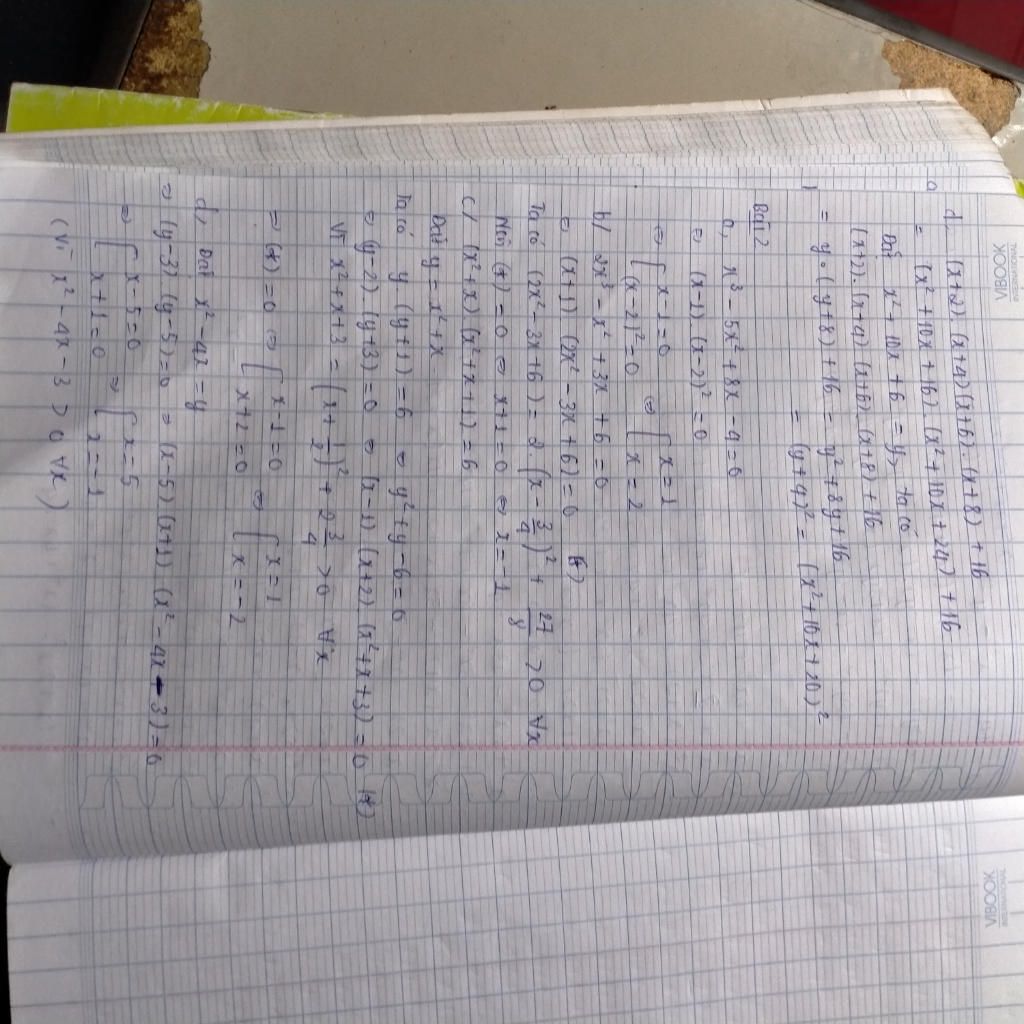 VIBOOK
INTERNATIONAL
d, (x+2).(x+4)(x+6).(x+8) + 16
= (x² + 10x + 16).(x² + 10x + 24) + 16
Đặt x² + 10x + 16 = y, ta có
(x+2).(x+4)(x+6).(x+8) + 16
= y.(y+8) + 16 = y² + 8y + 16
= (y+4)² = (x² + 10x + 20)²
Bài 2
a, x³ - 5x² + 8x - 4 = 0
⇔ (x-1).(x-2)² = 0
⇔ [ x-1=0 ⇔ [ x=1
(x-2)²=0 x=2
b/ 2x³ - x² + 3x + 6 = 0
⇔ (x+1)(2x² - 3x + 6) = 0 (*)
Ta có (2x² - 3x + 6) = 2.(x - 3/4)² + 27/8 > 0 ∀x
Nên (*) = 0 ⇔ x+1 = 0 ⇔ x = -1
c/ (x² + x)(x² + x + 1) = 6
Đặt y = x² + x
Ta có y (y+1) = 6 ⇔ y² + y - 6 = 0
⇔ (y-2).(y+3) = 0 ⇔ (x-1)(x+2).(x²+x+3) = 0 (*)
Vì x² + x + 3 = (x + 1/2)² + 2 3/4 > 0 ∀x
⇒ (*) = 0 ⇔ [ x-1=0 ⇔ [ x=1
x+2=0 x=-2
d, Đặt x² - 4x = y
⇒ (y-3).(y-5)=0 ⇒ (x-5)(x+1)(x² - 4x - 3) = 0
⇒ [ x-5=0 ⇒ [ x=5
x+1=0 x=-1
(Vì x² - 4x - 3 > 0 ∀x)
VIBOOK
INTERNATIONAL